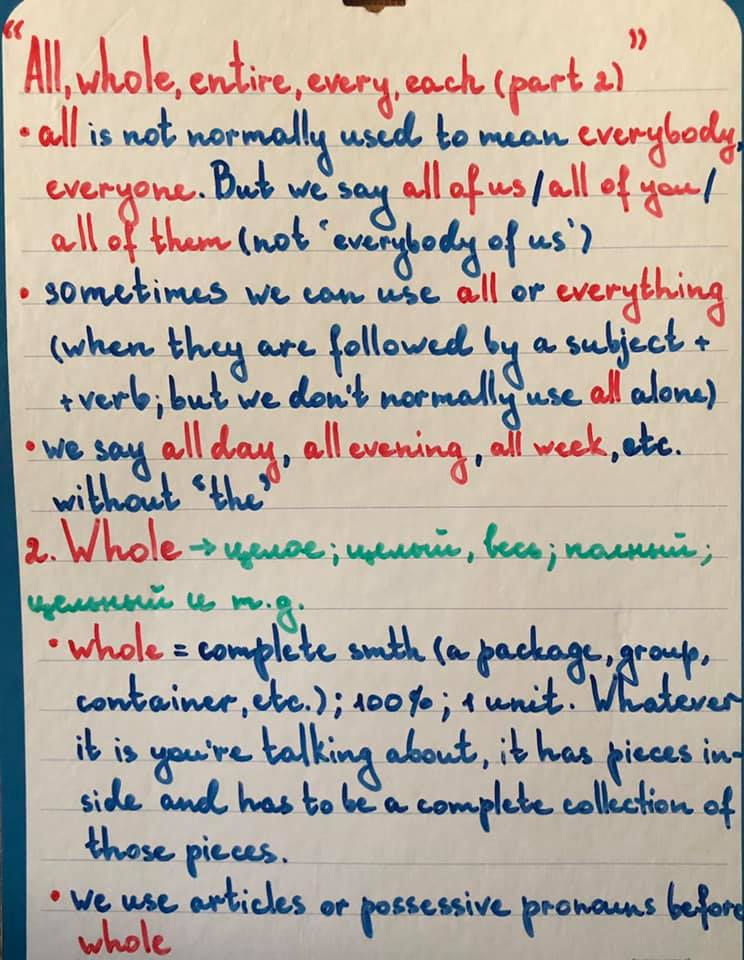 "All, whole, entire, every, each (part 2)"
• all is not normally used to mean everybody,
everyone. But we say all of us/all of you/
all of them (not 'everybody of us')
• sometimes we can use all or everything
(when they are followed by a subject +
+verb; but we don't normally use all alone)
• we say all day, all evening, all week, etc.
without "the"
2. Whole → целое; целый, весь; полный;
цельный и т.д.
• whole = complete smth (a package, group,
container, etc.); 100%; 1 unit. Whatever
it is you're talking about, it has pieces in-
side and has to be a complete collection of
those pieces.
• we use articles or possessive pronouns before
whole